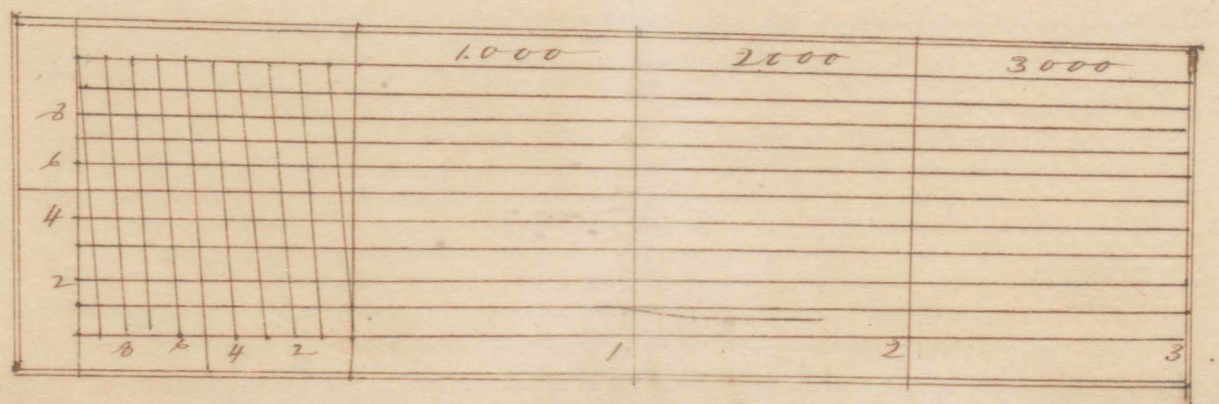 1.000 2000 3000
8
6
4
2
8 6 4 2 1 2 3